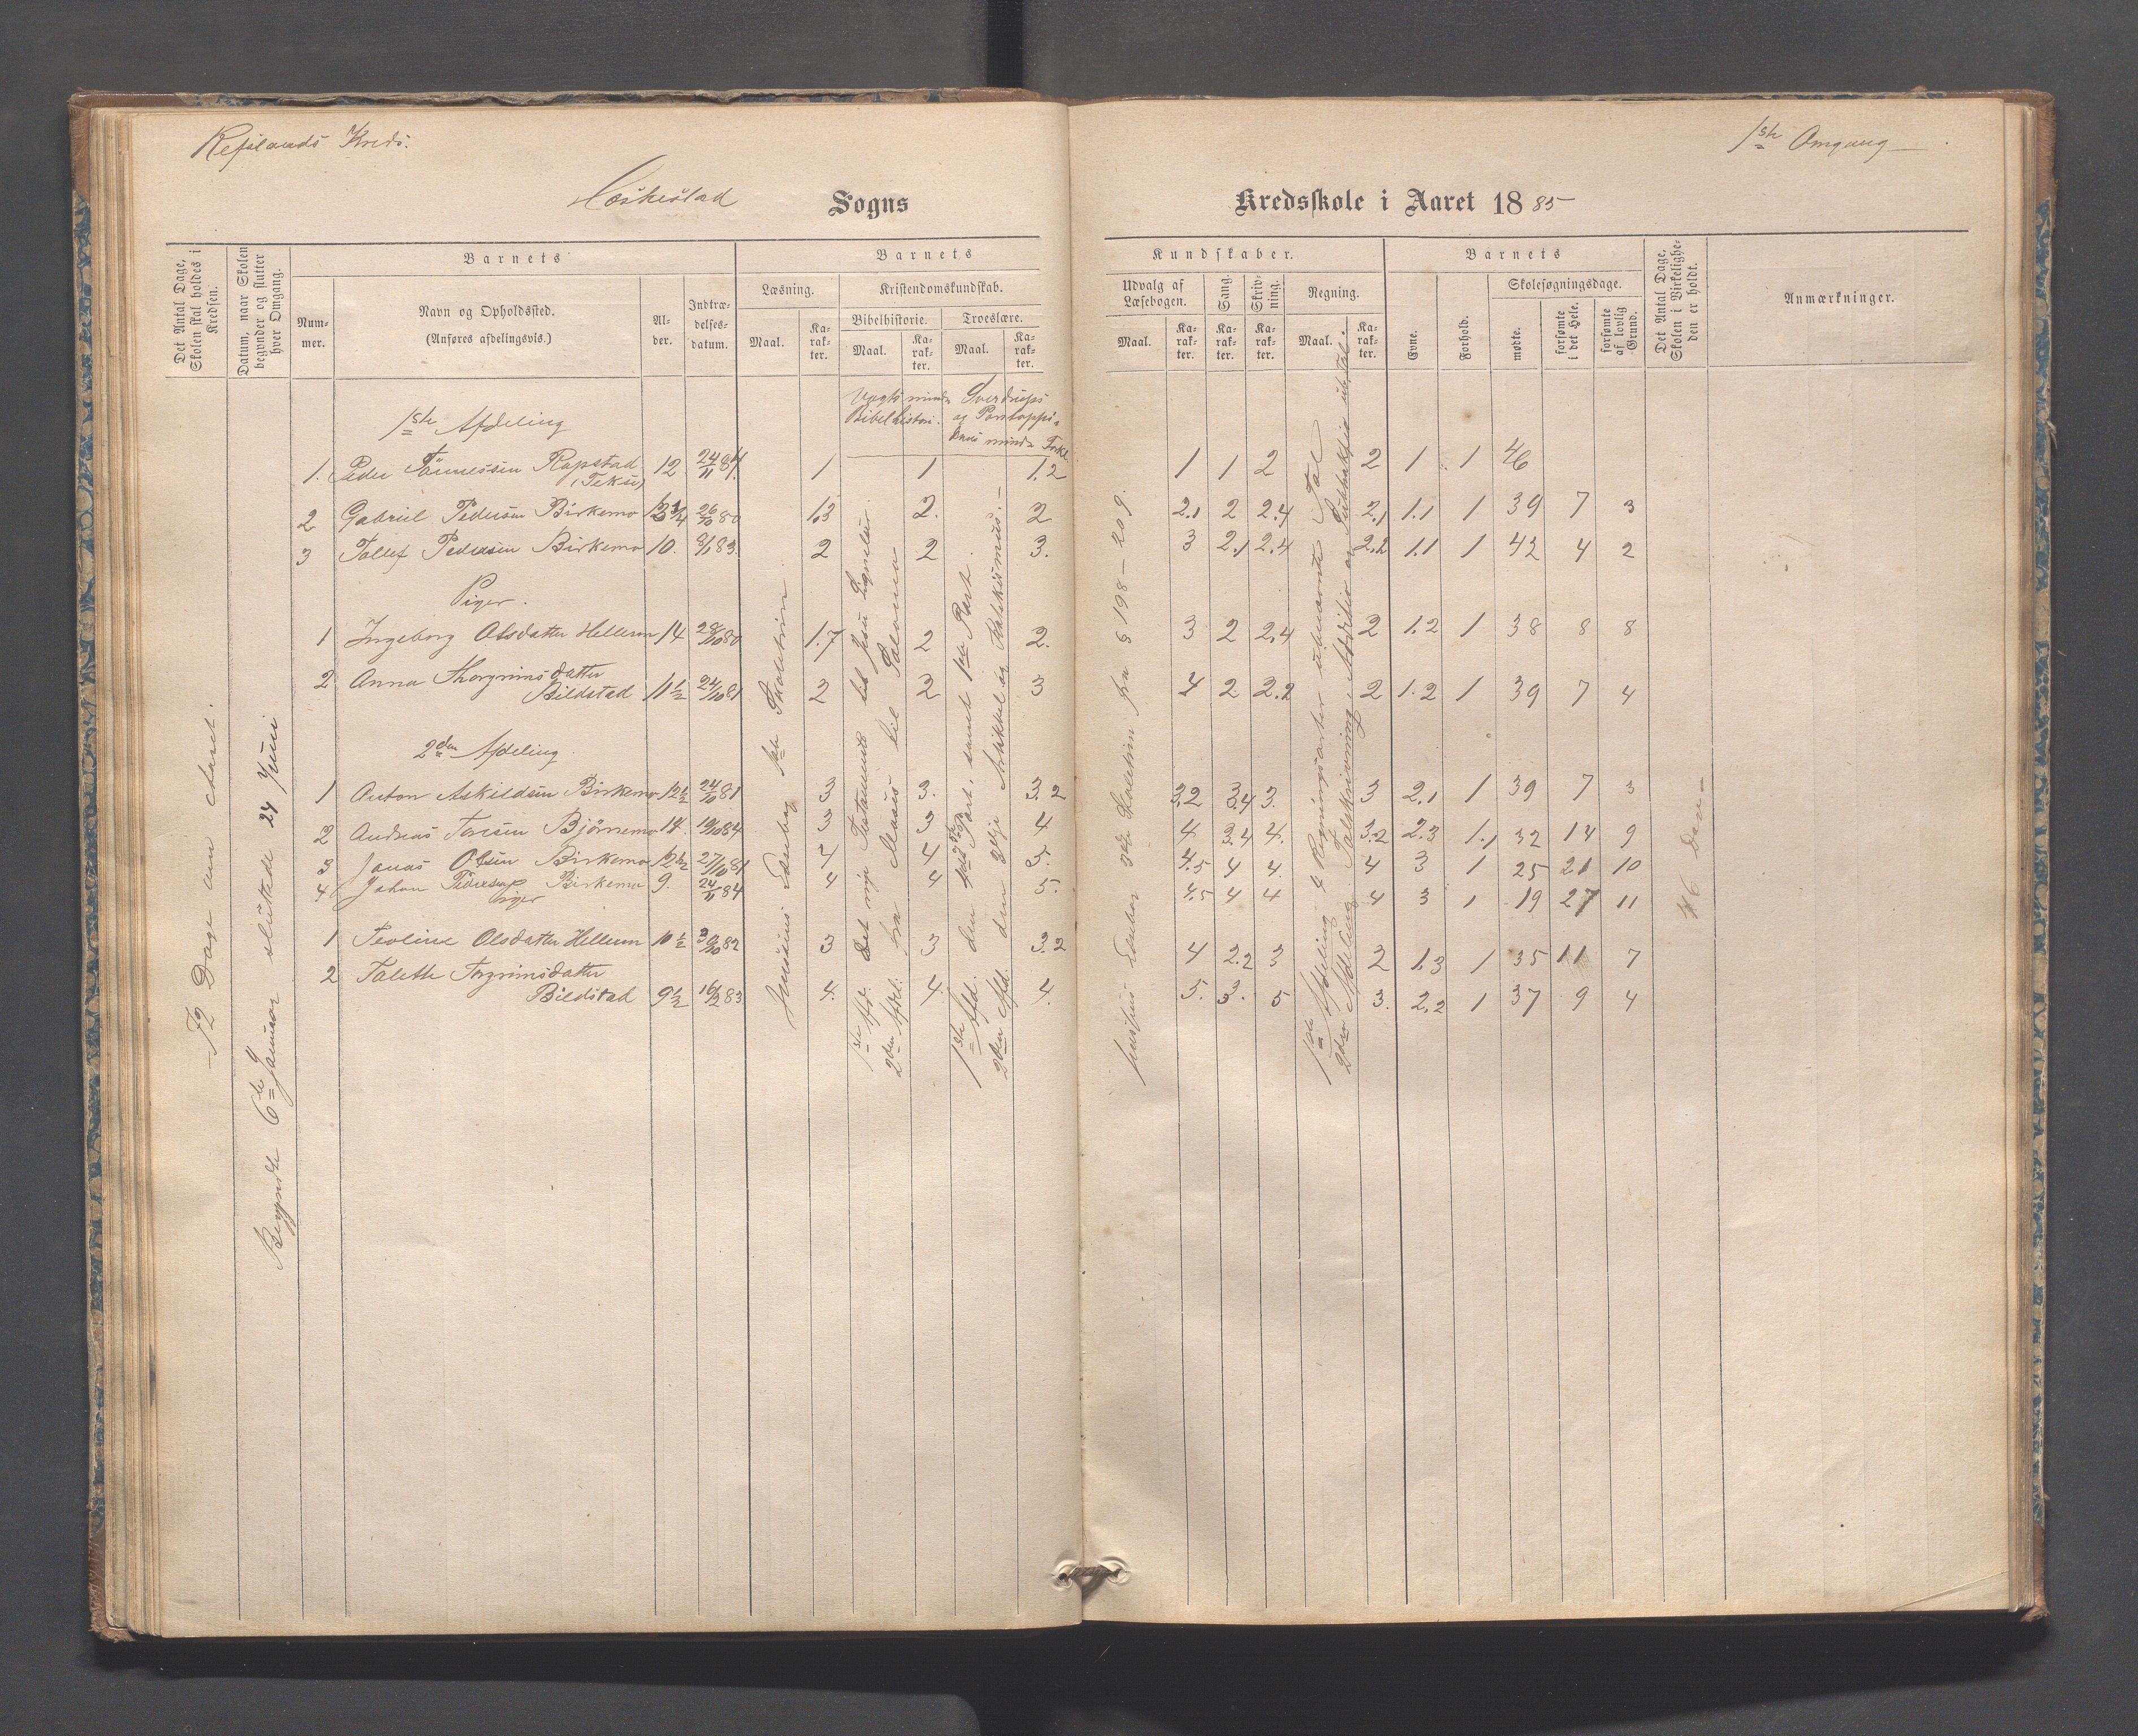 Refslands Kreds.
1ste Omgang
Heskestad Sogns
Kredsskole i Aaret 1885
Det Antal Dage, Skolen skal holdes i Kredsen.
Datum, naar Skolen begynder og slutter hver Omgang.
Barnets
Nummer.
Navn og Opholdssted.
(Anføres afdelingsvis.)
Alder.
Indtrædelsesdatum.
Barnets
Læsning.
Maal.
Karakter.
Kristendomskundskab.
Bibelhistorie.
Maal.
Karakter.
Troeslære.
Maal.
Karakter.
Kundskaber.
Udvalg af Læsebogen.
Maal.
Karakter.
Sang.
Karakter.
Skrivning.
Karakter.
Regning.
Maal.
Karakter.
Barnets
Evne.
Forhold.
Skolesøgningsdage.
mødte.
forsømte i det Hele.
forsømte af lovlig Grund.
Det Antal Dage, Skolen i Virkeligheden er holdt.
Anmærkninger.
72 Dage om Aaret.
Begyndte 6te Januar sluttede 24 Juni
Vogts mindre Bibelhistori.
Sverdrups og Pontoppidans mindre Forkl.
1ste Afdeling
1. Peder Tönnessen Rapstad (Tekse) 12 24/11 84. 1 1 1.2 1 1 2 2 1 1 46
2 Gabriel Pedersen Birkemo 13 3/4 26/10 80 1.3 2. 2 2.1 2 2.4 2.1 1.1 1 39 7 3
3 Tollef Pedersen Birkemo 10. 8/1 83. 2 2 3. 3 2.1 2.4 2.2 1.1 1 42 4 2
Piger.
1 Ingeborg Olsdatter Hellern 14 28/10 80 1.7 2 2. 3 2 2.4 2 1.2 1 38 8 8
2 Anna Thorgrimsdatter
Bildstad 11 1/2 24/10 81 2 2 3 4 2 2.2 2 1.2 1 39 7 4
2den Afdeling
1 Anton Askildsen Birkemo 12 1/2 24/10 81 3 3. 3.2 3.2 3.4 3. 3 2.1 1 39 7 3
2 Andreas Toresen Björnemo 14. 19/10 84 3 3 4 4 3.4 4. 3.2 2.3 1.1 32 14 9
3 Jonas Olsen Birkemo 12 1/2 27/10 81 4 4 5. 4.5 4 4. 4 3 1 25 21 10
4 Johan Pedersen Birkemo 9. 24/11 84 4 4 5. 4.5 4 4 4 3 1 19 27 11
Piger
1 Teoline Olsdatter Hellern 10 1/2 30/10 82 3 3 3.2 4 2.2 3 2 1.3 1 35 11 7
2 Talette Torgrimsdatter
Bildstad 9 1/2 16/2 83 4. 4. 4. 5. 3. 5 3. 2.2 1 37 9 4
Jensenius Læsebog 1ste Skoletrin
1ste Afd. Det nye Testamente til Jesu Lignelser.
2den Afdel. fra Moses til Salomo
1ste Afd. den 2den Part, samt 1ste Part.
2den Afd. den 3dje Artikkel og Katekismus.
Jensenius Læsebog 3die Skoletrin fra § 198–209.
1ste Afdeling 4 Regningsarter ubenævnte Tal
2den Afdeling Talskrivning, Addition og Subtraktion ub. Tal.
46 Dage